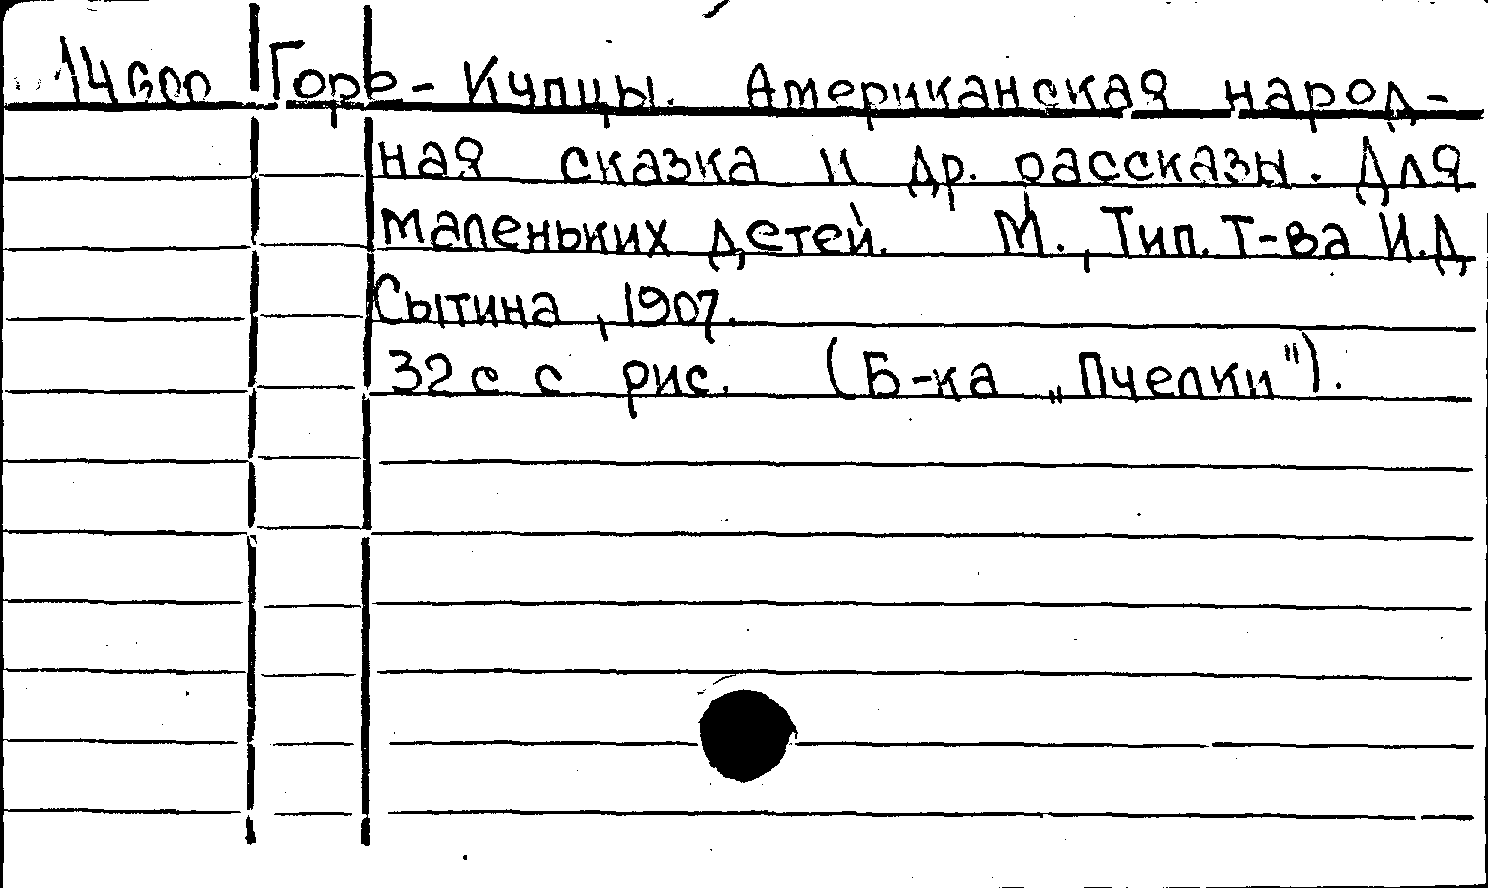 14600 Горе-Купцы. Американская народ-
ная сказка и др. рассказы. Для
маленьких детей. М., Тип. Т-ва И.Д
Сытина, 1907.
32 с с рис. (Б-ка „Пчелки").